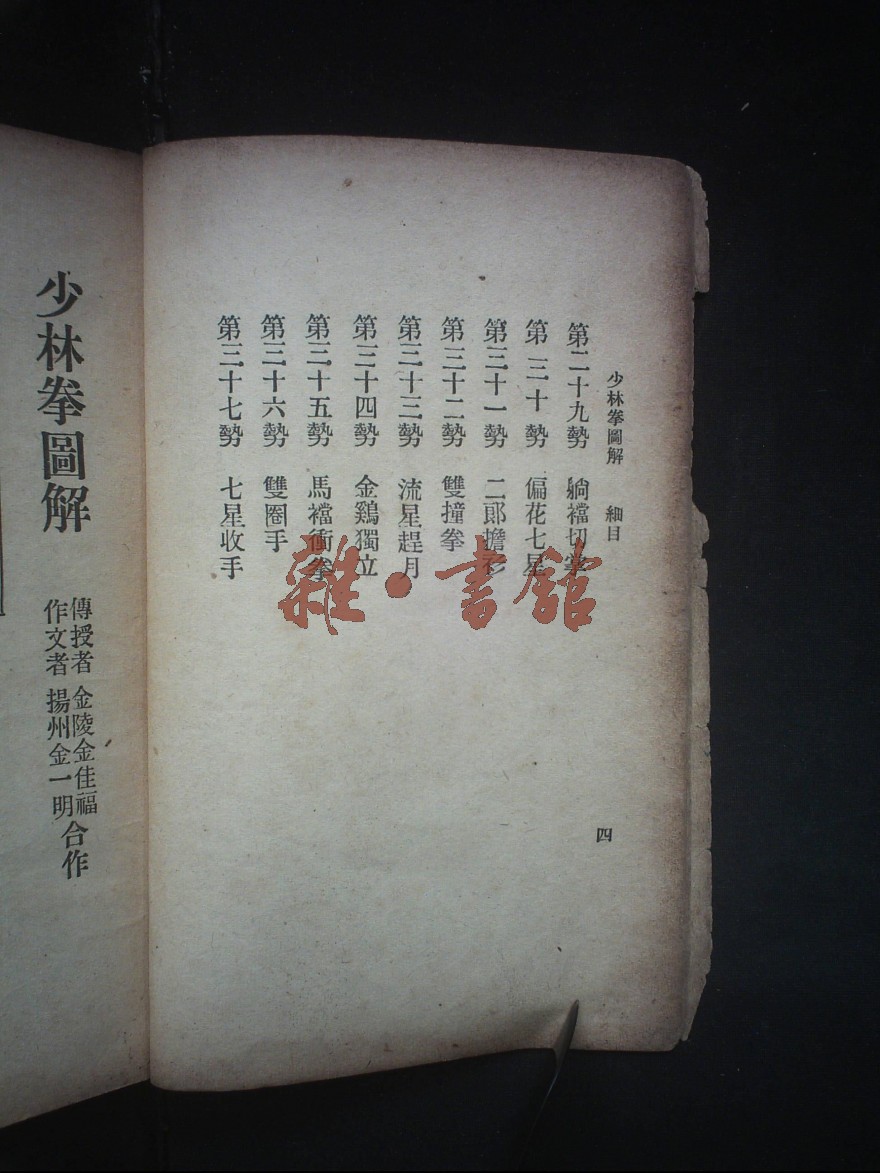 少林拳圖解　細目
第二十九勢　躺襠切掌
第三十勢　偏花七星
第三十一勢　二郎擔衫
第三十二勢　雙撞拳
第三十三勢　流星趕月
第三十四勢　金鷄獨立
第三十五勢　馬襠衝拳
第三十六勢　雙圈手
第三十七勢　七星收手
四
雜·書館
少林拳圖解
傳授者　金陵金佳福
作文者　揚州金一明
合作